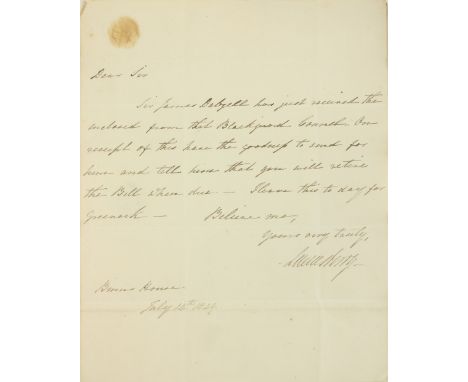 Dear Sir
Sir James Dalyell has just received the
inclosed from that Blackguard On
receipt of this have the goodness to send for
him and tell him that you will retire
the Bill when due — I leave this to day for
Greenock — Believe me,
Yours very truly,
Binns House
July 14th